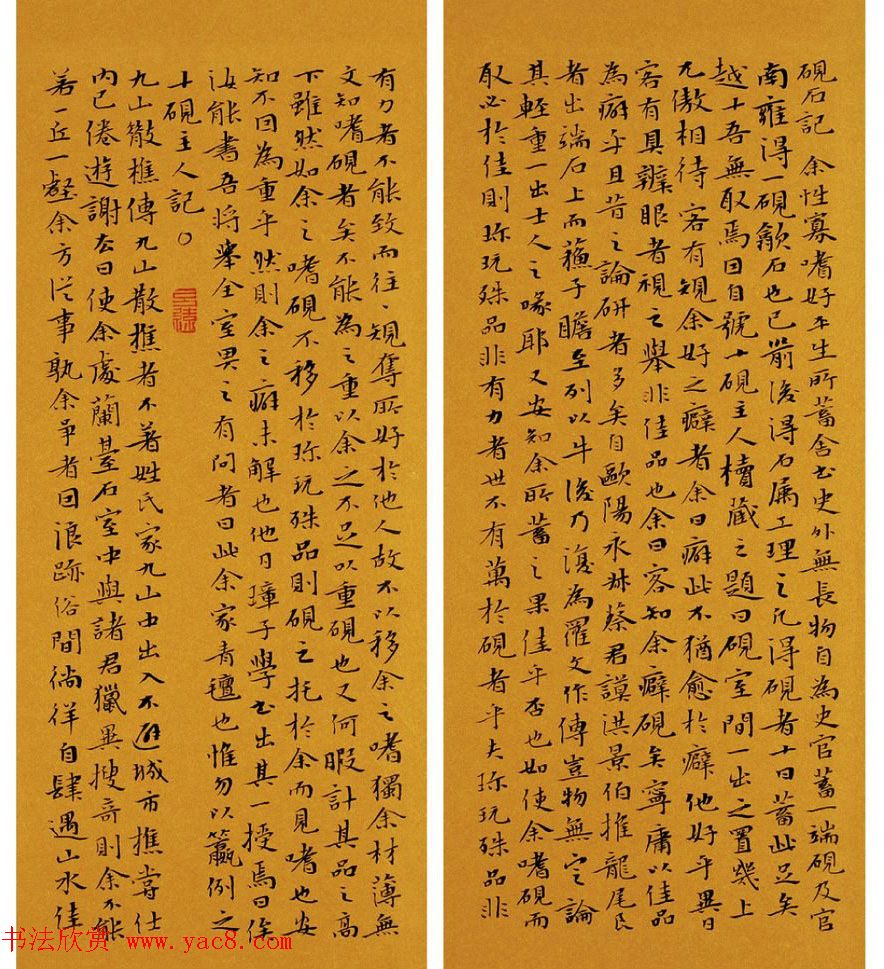 硯石記 余性寡嗜好平生所蓄舍书史外無長物自為史官蓄一端硯及官
南雍得一硯歙石也已前後得石属工理之凡得硯者十曰蓄此足矣
越十吾無取焉因自號十硯主人櫝藏之題曰硯室間一出之置幾上
兀傲相待客有規余好之癖者余曰癖此不猶愈於癖他好乎異日
客有具辨眼者視之舉非佳品也余曰客知余癖硯矣寧庸以佳品
為癖乎且昔之論研者多矣自歐陽永叔蔡君謨洪景伯推龍尾良
者出端石上而蘇子瞻至列以牛後乃復為羅文作傳豈物無定論
其輕重一出士人之喙耶又安知余所蓄之果佳乎否也如使余嗜硯而
取必於佳則珎玩殊品非有力者世不有萬於硯者乎夫珎玩殊品非
有力者不能致而往、規奪所好於他人故不以移余之嗜獨余材薄無
文知嗜硯者矣不能為之重以余之不足以重硯也又何暇計其品之高
下雖然如余之嗜硯不移於珎玩殊品則硯之托於余而見嗜也安
知不回為重乎然則余之癖未解也他日璋子學书出其一授焉曰俟
汝能書吾將舉全室畀之有問者曰此余家青氊也惟勿以籝例之
十硯主人記。
九山散樵傳九山散樵者不著姓氏家九山中出入不避城市樵嘗仕
内已倦遊謝去曰使余處蘭臺石室中與諸君獵異搜奇則余不能
若一丘一壑余方從事孰余爭者因浪跡俗間徜徉自肆遇山水佳
书法欣赏 www.yac8.com